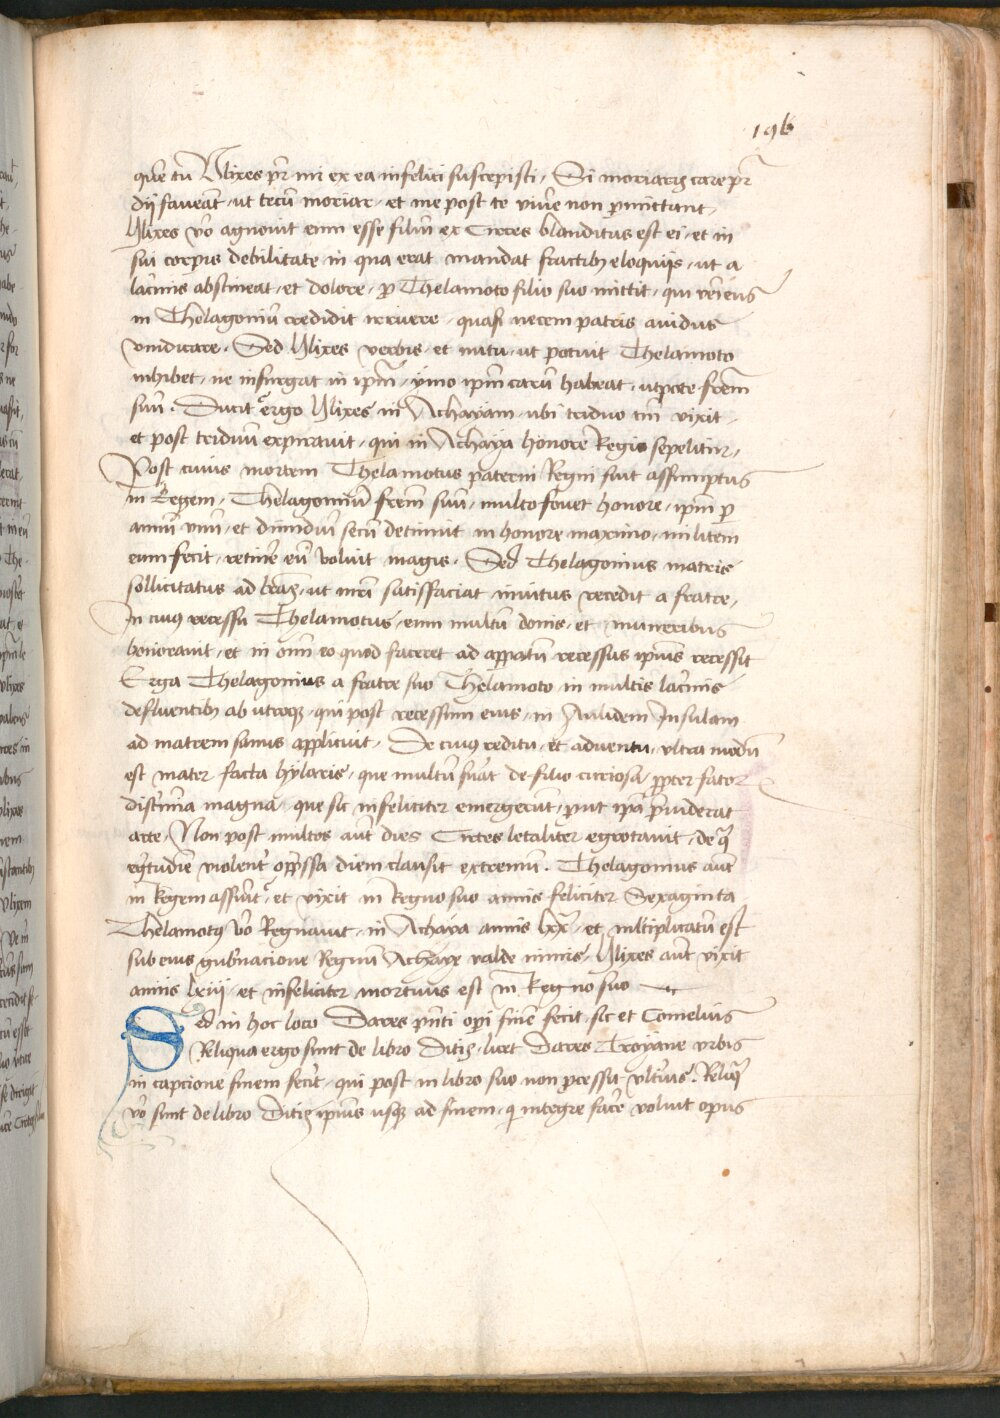 196
que tu Ulixes pr mi ex ea infelici suscepisti / Si moriaris care pr
dij faveat / ut tecu moriar / et me post te vive non pmittant /
Ulixes vo agnovit eum esse filiu ex Circes blanditus est ei / et in
sui corpis debilitate in qua erat mandat fractib eloquijs / ut a
lacrimis abstineat / et dolore / p Thelamoto filio suo mittit / qui veniens
in Thelagoniu credidit irruere / quasi necem patris avidus
vindicare / Sed Ulixes verbis / et nutu / ut potuit Thelamoto
inhibet / ne insurgat in ipm / ymo ipm caru habeat / utpote frem
suu / Ducit ergo Ulixes in Achayam / ubi triduo tm vixit /
et post triduu expiravit / qui in Achaya honore Regio sepelitur /
Post cuius mortem Thelamotus paterni Regni fuit assumptus
in Regem / Thelagoniu frem suu / multo fovet honore / ipm p
annu unu / et dimidiu secu detinuit in honore maximo / militem
eum fecit / retinere eu voluit magis / Sed Thelagonius matris
sollicitatus ad / ut mri satisfaciat invitus recedit a fratre /
In cuiq recessu Thelamotus / eum multu donis / et muneribus
honoravit / et in omi eo quod faceret ad apparatu recessus ipius recessit
Erga Thelagonius a fratre suo Thelamoto in multis lacrimis
defluentib ab utroq / qui post recessum eius / in Aulidem Insulam
ad matrem sanus applicuit / De cuiq reditu / et adventu / ultra modu
est mater facta hylaris / que multu fuat de filio curiosa / ppter fator
discrimina magna / que sic infeliciter emergerut / put ipa pviderat
arte / Non post multos aut dies Circes letaliter egrotavit / de q
egritudine violent oppssa diem clausit extremu / Thelagonius aut
in Regem assuit / et vixit in Regno suo annis feliciter Sexaginta
Thelamotq vo Regnavit / in Achaya annis lxx / et multiplicatu est
sub eius gubnacione Regnu Achaye valde nimis / Ulixes aut vixit
annis lxiij / et infeliciter mortuus est in Regno suo
Sed in hoc loco Dares pnti opi fine fecit / sic et Cornelius
Reliqua ergo sunt de libro Ditis / licet Dares Troyane urbis
in capcione finem fecit / qui post in libro suo non pcessit ulterius / Reliq
vo sunt de libro Ditis ipius usq ad finem / q integre face voluit opus